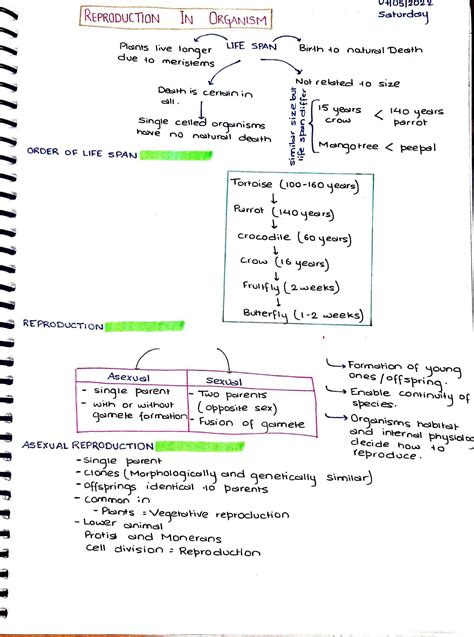 04/05/2022
Saturday
REPRODUCTION IN ORGANISM
Plants live longer
due to meristems
LIFE SPAN
Birth to natural Death
Death is certain in
all.
Not related to size
Single celled organisms
have no natural death
similar size but
life span differ
15 years < 140 years
crow parrot
Mangotree < peepal
ORDER OF LIFE SPAN
Tortoise (100-160 years)
Parrot (140 years)
Crocodile (60 years)
Crow (16 years)
Fruitfly (2 weeks)
Butterfly (1-2 weeks)
REPRODUCTION
Asexual
- single parent
- with or without
gamete formation
Sexual
- Two parents
(opposite sex)
- Fusion of gamete
Formation of young
ones/offspring.
Enable continuity of
species.
Organisms habitat
and internal physiolo
decide how to
reproduce.
ASEXUAL REPRODUCTION
- Single parent
- Clones (Morphologically and genetically similar)
- Offsprings identical to parents
- Common in
- Plants = Vegetative reproduction
- Lower animal
Protist and Monerans
Cell division = Reproduction